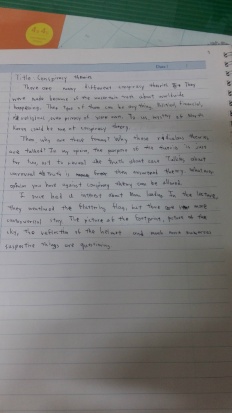 Title: Conspiracy theories
There are many different conspiracy theories. They
were made because of the uncertain truth about worldwide
happening. The type of them can be anything. Political, financial,
religious, some privacy of were own. To me, mostly of North
Korea could be one of conspiracy theory.
Then why are these famous? Why these ridiculous theories
are talked? In my opinion, the purpose of the theories is just
for fun, not to reveal the truth about case. Talking about
universal truth is from than incorrect theory. Whatever
opinion you have against conspiracy theory can be allowed.
I once had a interest about Moon landing. In the lecture,
they mentioned the fluttering flag, but there are more
controversial story. The picture of the footprint, picture of the
sky, the reflection of the helmet and much more numerous
suspective things are questioning.